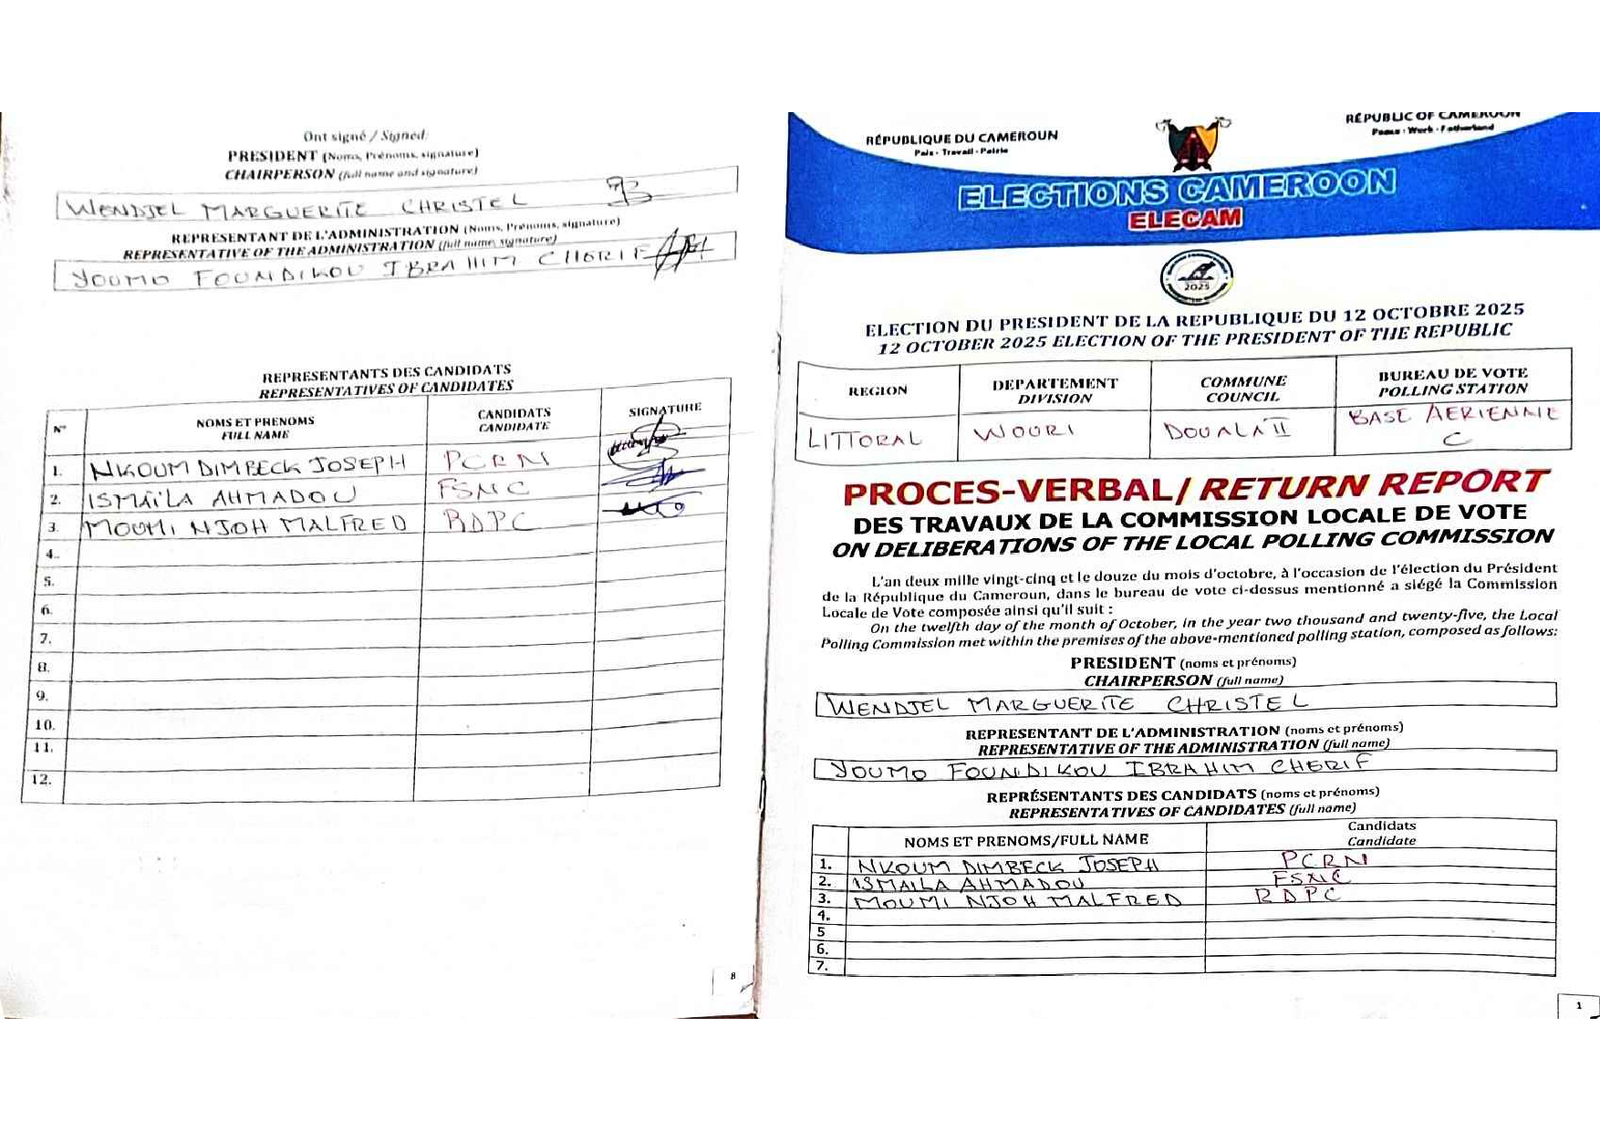 Ont signé / Signed:
PRESIDENT (Noms, Prénoms, signature)
CHAIRPERSON (full name and signature)
WENDJEL MARGUERITE CHRISTEL
REPRESENTANT DE L'ADMINISTRATION (Noms, Prénoms, signature)
REPRESENTATIVE OF THE ADMINISTRATION (full name, signature)
YOUMO FOUNDIKOU IBRAHIM CHERIF
REPRESENTANTS DES CANDIDATS
REPRESENTATIVES OF CANDIDATES
N° NOMS ET PRENOMS CANDIDATS SIGNATURE
FULL NAME CANDIDATE
1. NKOUM DIMBECK JOSEPH PCRN
2. ISMAÏLA AHMADOU FSNC
3. MOUMI NJOH MALFRED RDPC
4.
5.
6.
7.
8.
9.
10.
11.
12.
8
RÉPUBLIQUE DU CAMEROUN
Paix - Travail - Patrie
RÉPUBLIC OF CAMEROUN
Peace - Work - Fatherland
ELECTIONS CAMEROON
ELECAM
2025
ELECTION DU PRESIDENT DE LA REPUBLIQUE DU 12 OCTOBRE 2025
12 OCTOBER 2025 ELECTION OF THE PRESIDENT OF THE REPUBLIC
REGION DEPARTEMENT COMMUNE BUREAU DE VOTE
DIVISION COUNCIL POLLING STATION
LITTORAL WOURI DOUALA II BASE AERIENNE
C
PROCES-VERBAL/ RETURN REPORT
DES TRAVAUX DE LA COMMISSION LOCALE DE VOTE
ON DELIBERATIONS OF THE LOCAL POLLING COMMISSION
L'an deux mille vingt-cinq et le douze du mois d'octobre, à l'occasion de l'élection du Président
de la République du Cameroun, dans le bureau de vote ci-dessus mentionné a siégé la Commission
Locale de Vote composée ainsi qu'il suit :
On the twelfth day of the month of October, in the year two thousand and twenty-five, the Local
Polling Commission met within the premises of the above-mentioned polling station, composed as follows:
PRESIDENT (noms et prénoms)
CHAIRPERSON (full name)
WENDJEL MARGUERITE CHRISTEL
REPRESENTANT DE L'ADMINISTRATION (noms et prénoms)
REPRESENTATIVE OF THE ADMINISTRATION (full name)
YOUMO FOUNDIKOU IBRAHIM CHERIF
REPRÉSENTANTS DES CANDIDATS (noms et prénoms)
REPRESENTATIVES OF CANDIDATES (full name)
NOMS ET PRENOMS/FULL NAME Candidats
Candidate
1. NKOUM DIMBECK JOSEPH PCRN
2. ISMAILA AHMADOU FSNC
3. MOUMI NJOH MALFRED RDPC
4.
5
6.
7.
1